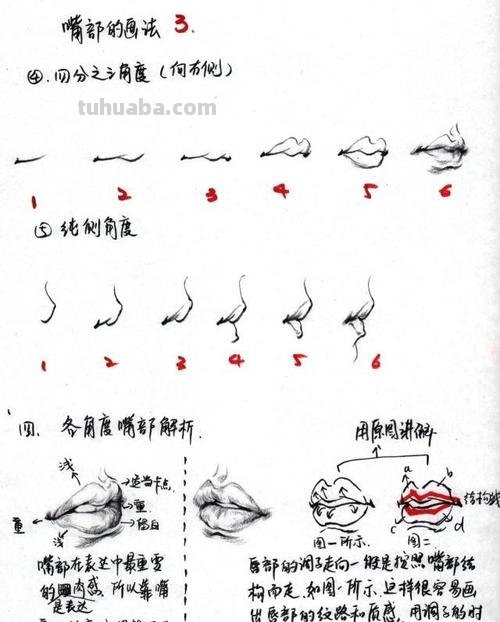 嘴部的画法 3.
④.四分之三角度(向右侧)
tuhuaba.com
1 2 3 4 5 6
⑤ 纯侧角度
1 2 3 4 5 6
四. 各角度嘴部解析.
用原图讲解
浅
适当卡点
重
留白
重
浅
a b
结构线
c d
图一所示. 图二
嘴部在表达中最重要
的是肉感.所以靠嘴
是表达
唇部的调子走向一般是按照嘴部结
构而走.如图一所示.这样很容易画
出唇部的纹路和质感.用调子的时